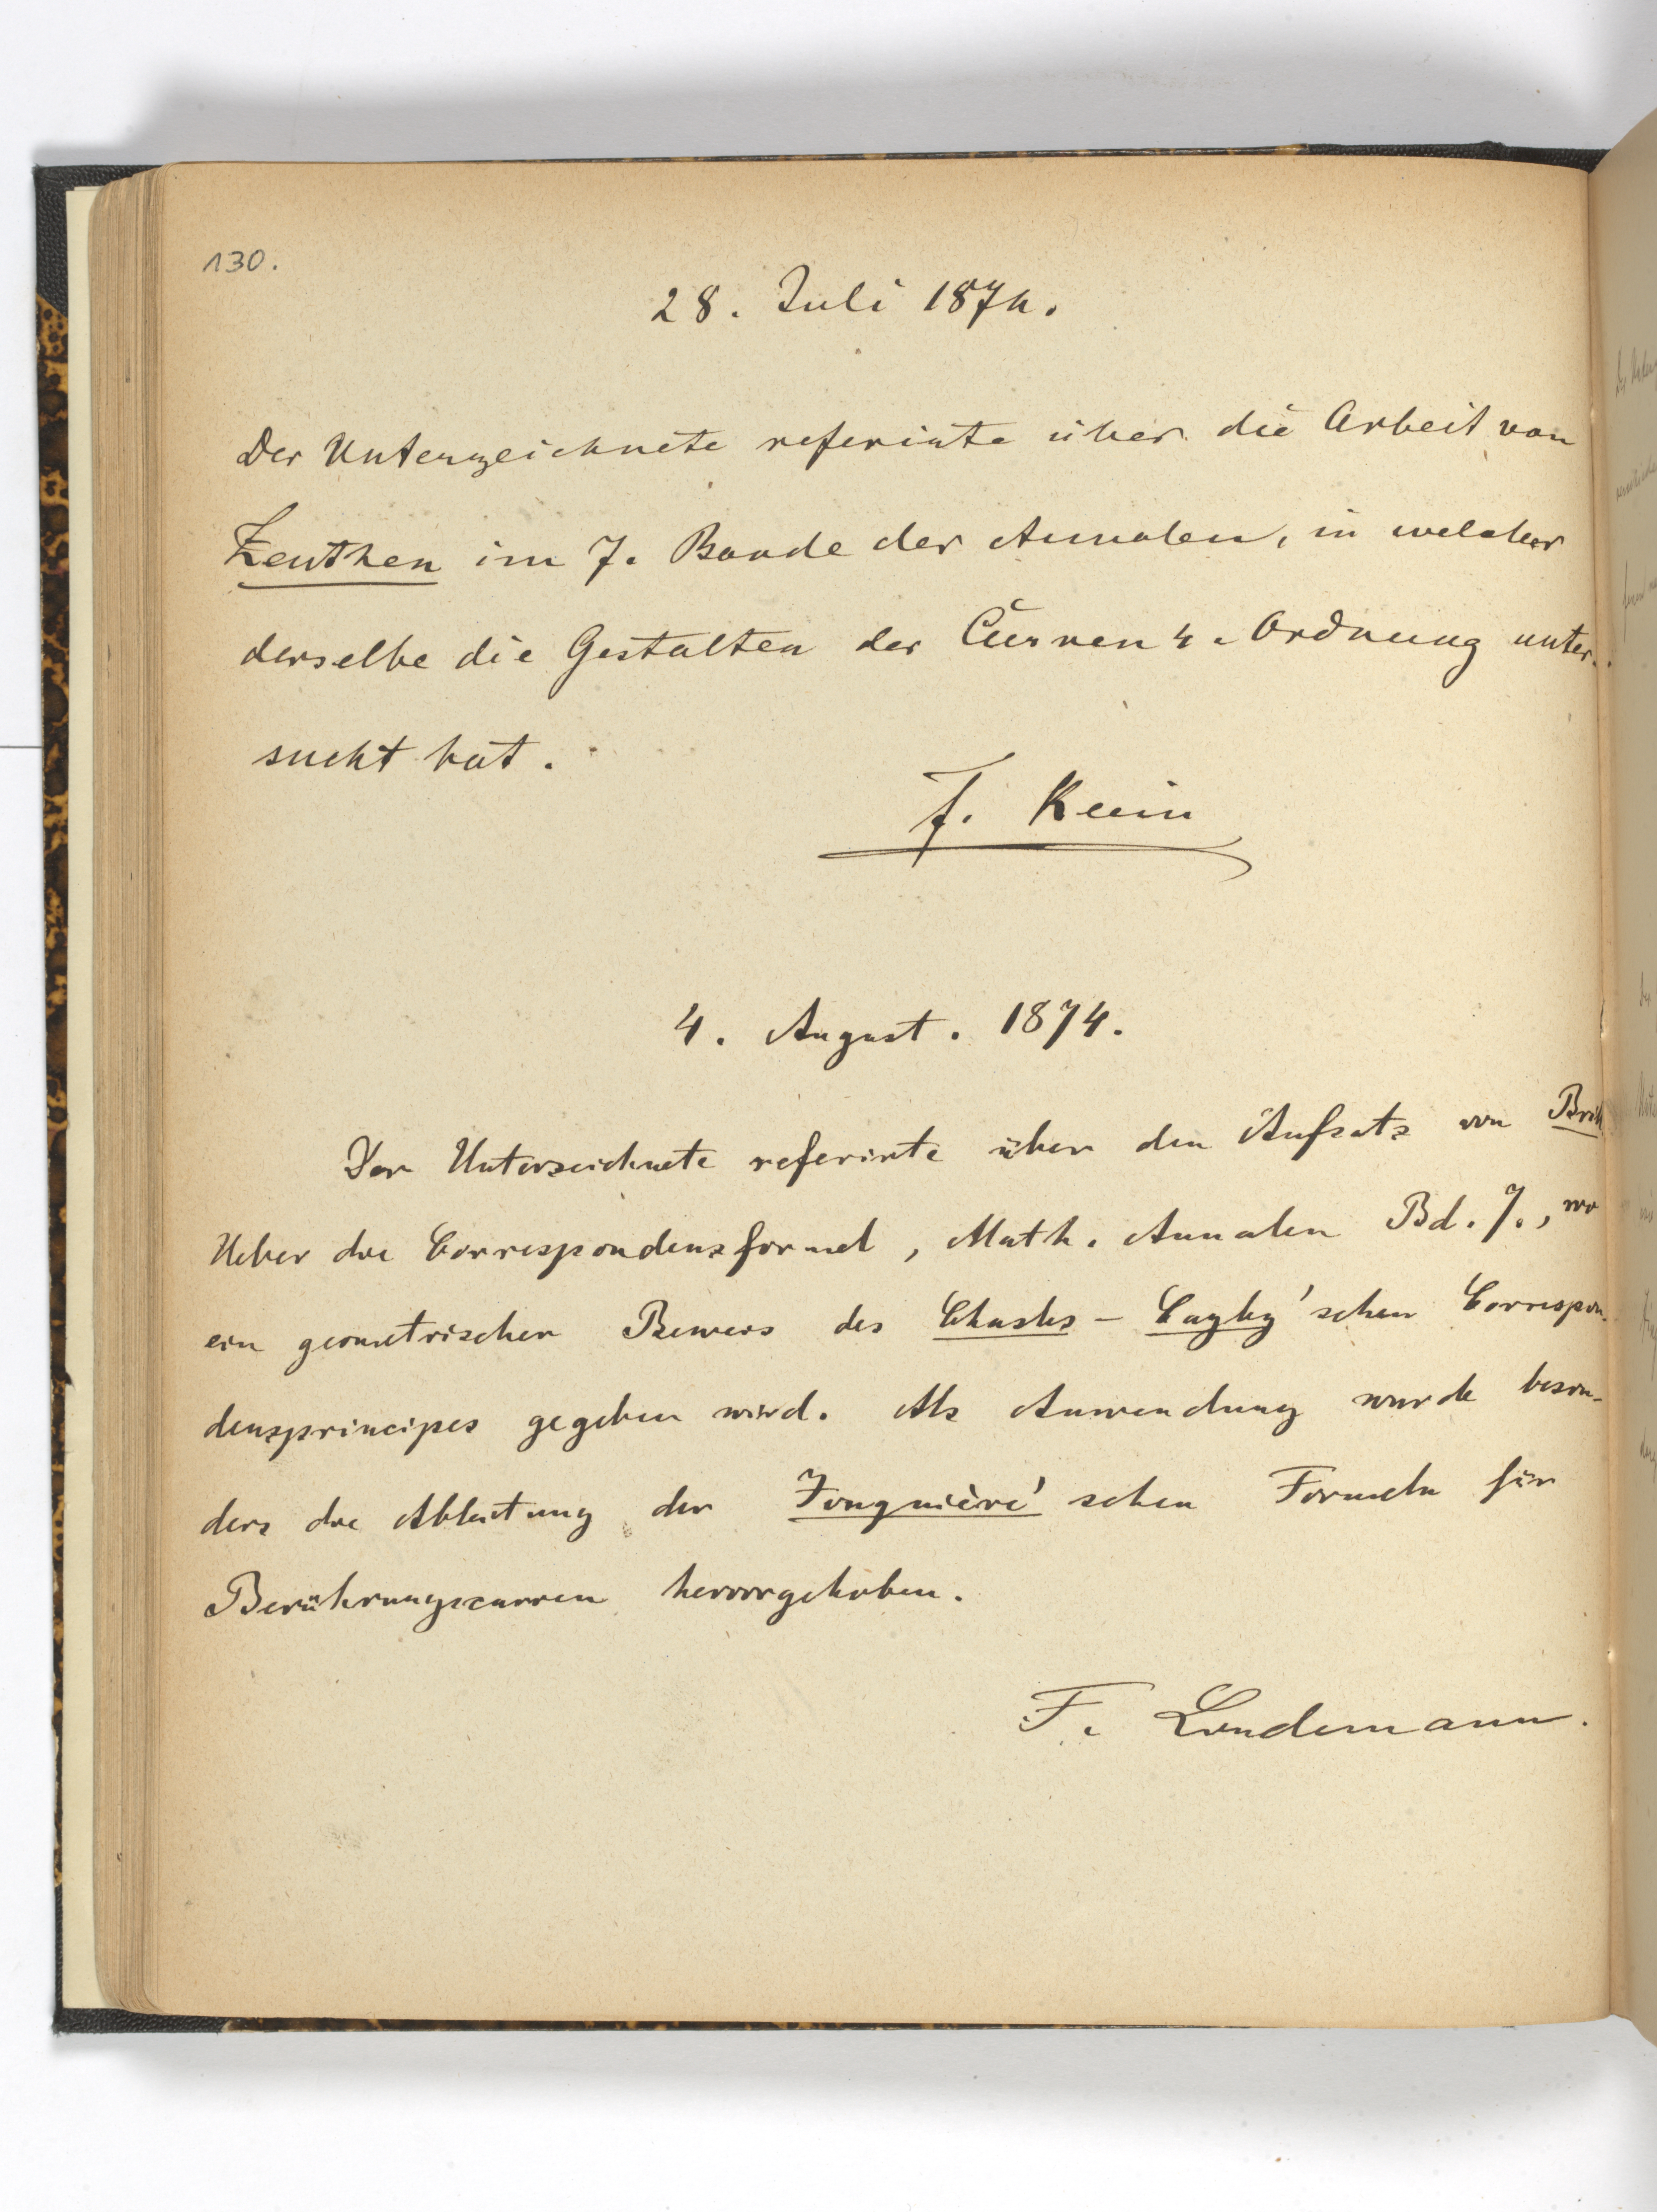 130.
28. Juli 1874.
Der Unterzeichnete referirte über die Arbeit von
Zeuthen im 7. Bande der Annalen, in welcher
derselbe die Gestalten der Curven 4. Ordnung unter-
sucht hat.
F. Klein
4. August. 1874.
Der Unterzeichnete referirte über den Aufsatz von Brill
Ueber die Correspondenzformel, Math. Annalen Bd. 7., wo
ein geometrischer Beweis des Chasles-Cayley'schen Correspon-
denzprincipes gegeben wird. Als Anwendung wurde beson-
ders die Ableitung der Jonquière'schen Formeln für
Berührungscurven hervorgehoben.
F. Lindemann.